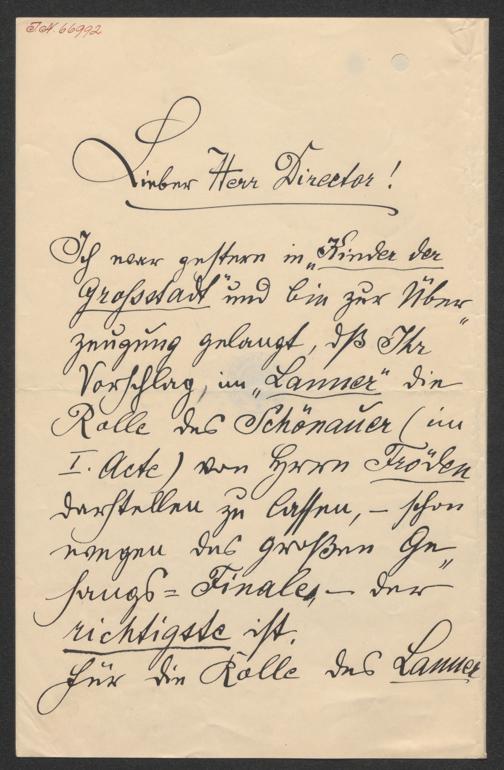 I.N. 66992
Lieber Herr Director!
Ich war gestern in „Kinder der
Grossstadt" und bin zur Über„
zeugung gelangt, dß Ihr
Vorschlag, im „Lanner" die
Rolle des Schönauer (im
I. Acte) von Herrn Fröden
darstellen zu lassen, – schon
wegen des großen Ge„
sangs=Finale, – der
richtigste ist.
Für die Rolle des Lanner